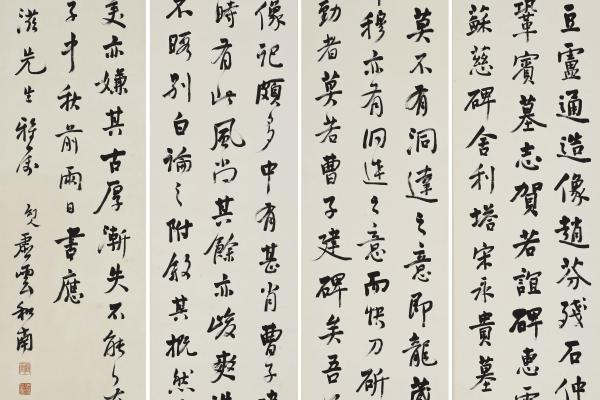 亘靈通造像趙芬殘石仲
鞏賓墓志賀若誼碑惠雲
蘇慈碑舍利塔宋永貴墓
莫不有洞達之意即龍藏
穆亦有洞達之意而快刀斫
勁者莫若曹子建碑矣吾
像記頗多中有甚肖曹子建
時有此風尚其餘亦峻爽
不暇別白論之附敘其概然
美亦嫌其古厚漸失不能
子中秋前兩日書應
滋先生雅屬
虛雲和南